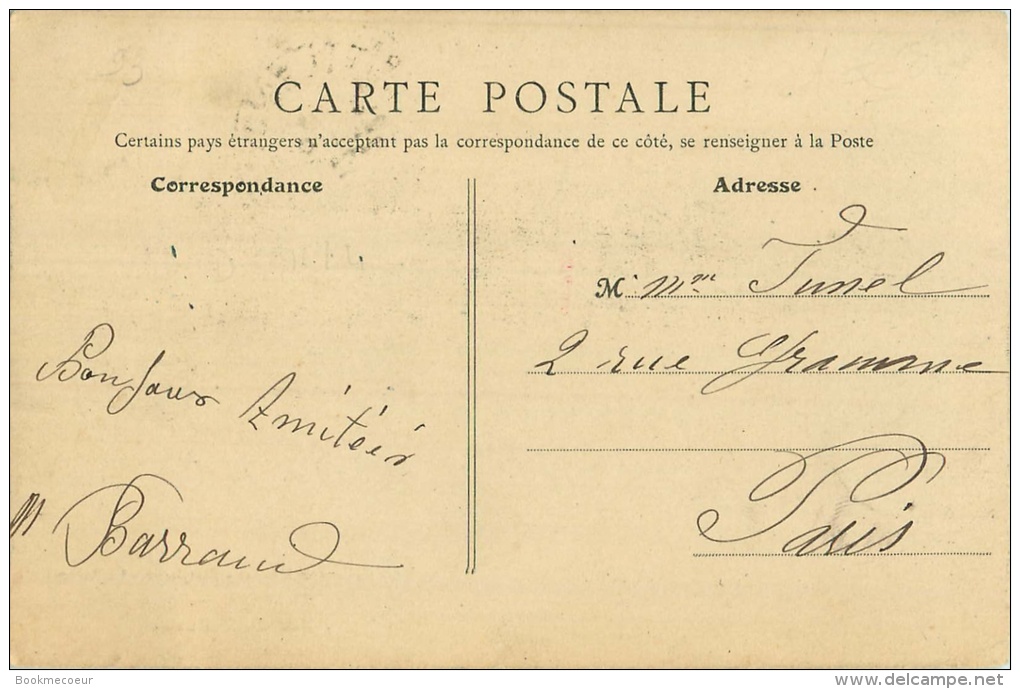 CARTE POSTALE
Certains pays étrangers n'acceptent pas la correspondance de ce côté, se renseigner à la Poste
Correspondance
Adresse
M. Mme Tunel
2 rue Gramme
Paris
Bonjour Amitiés
M Barraud
Bookmecoeur
www.delcampe.net